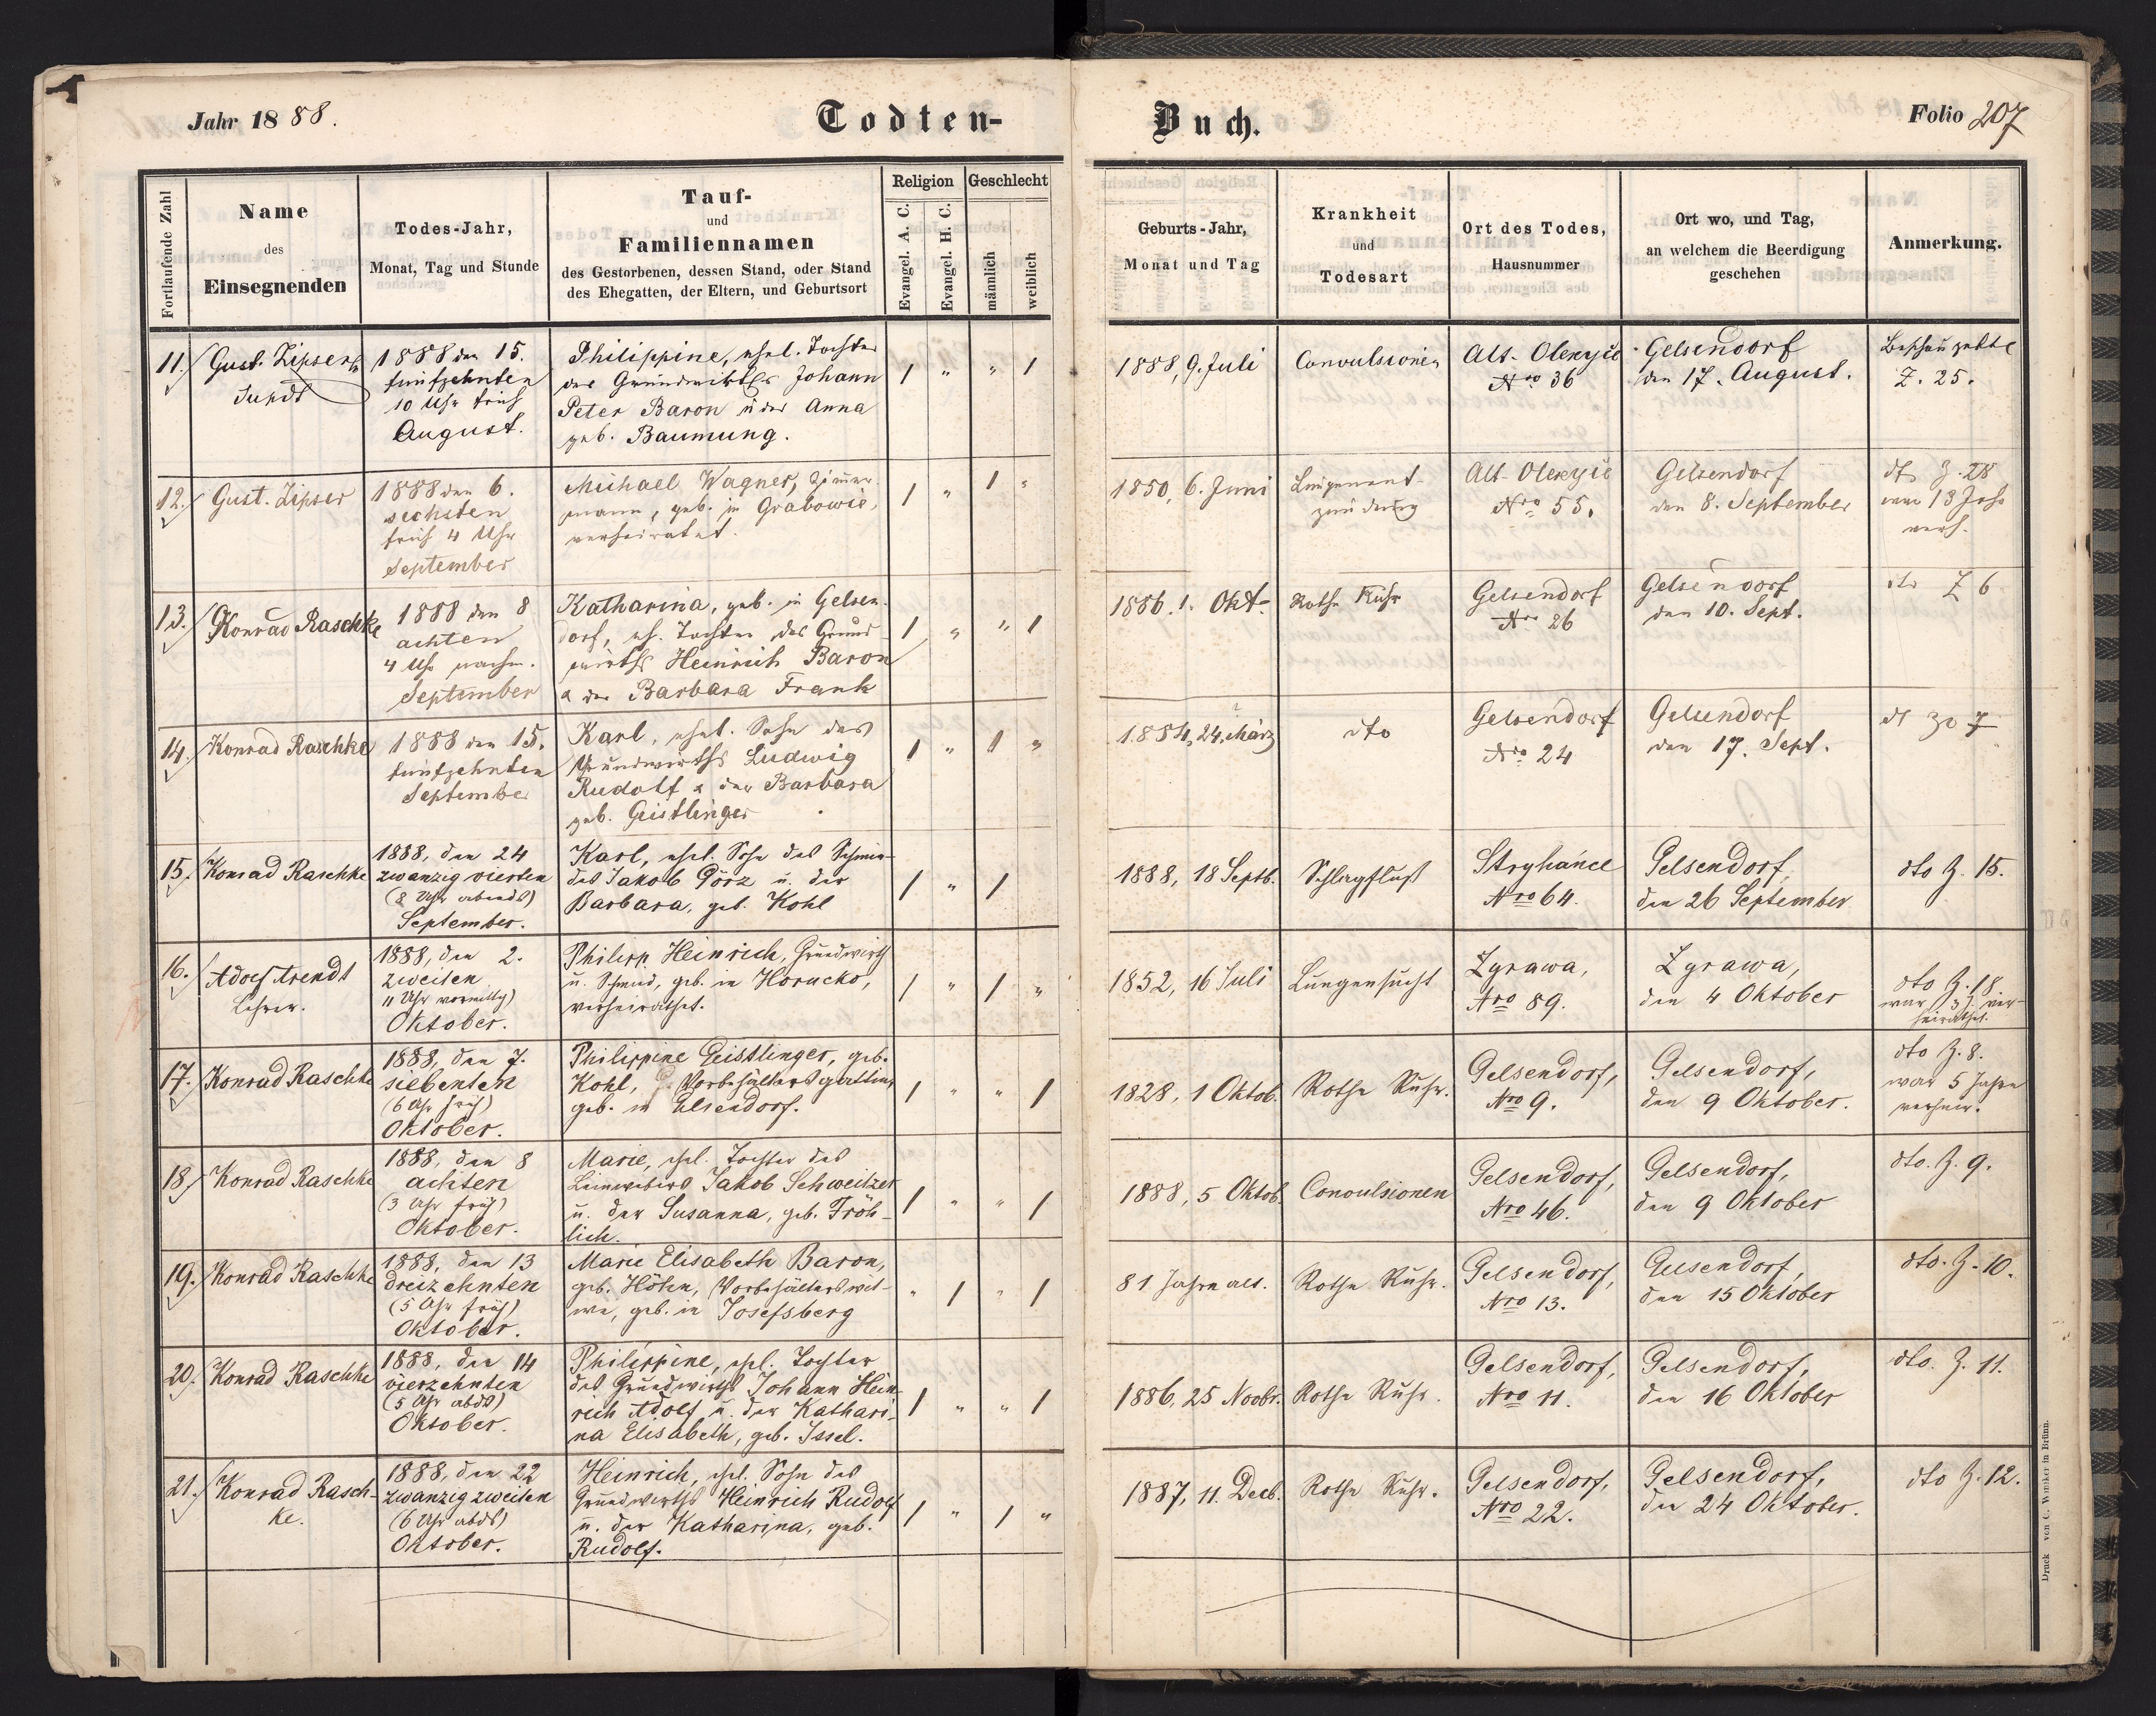 Jahr 1888.
Todten-
Buch.
Folio 207
Fortlaufende Zahl
Name
des
Einsegnenden
Todes-Jahr,
Monat, Tag und Stunde
Tauf-
und
Familiennamen
des Gestorbenen, dessen Stand, oder Stand
des Ehegatten, der Eltern, und Geburtsort
Religion
Evangel. A. C.
Evangel. H. C.
Geschlecht
männlich
weiblich
Geburts-Jahr,
Monat und Tag
Krankheit
und
Todesart
Ort des Todes,
Hausnummer
Ort wo, und Tag,
an welchem die Beerdigung
geschehen
Anmerkung.
11.
Gust. Zipser
1888 den 15.
fünfzehnten
10 Uhr früh
August.
Philippine, ehel. Tochter
des Grundwirths Johann
Peter Baron u. der Anna
geb. Baumung.
1 " " 1
1888, 9. Juli
Convulsionen
Alt-Olexyie
Nro 36
Gelsendorf
den 17. August.
Beschauzettel
Z. 25.
12.
Gust. Zipser
1888 den 6.
sechsten
früh 4 Uhr
September
Michael Wagner, Zimmer-
mann, geb. in Grabowie,
verheiratet.
1 " 1 "
1850, 6. Juni
Lungenent-
zündung
Alt-Olexyie
Nro 55.
Gelsendorf
den 8. September
dto Z. 28
war 13 Jahr
verh.
13.
Konrad Raschke
1888 den 8
achten
4 Uhr nachm.
September
Katharina, geb. in Gelsen-
dorf, eh. Tochter des Grund-
wirths Heinrich Baron
& der Barbara Frank
1 " " 1
1886. 1. Okt.
Rothe Ruhr
Gelsendorf
Nro 26
Gelsendorf
den 10. Sept.
dto Z 6
14.
Konrad Raschke
1888 den 15.
fünfzehnten
September
Karl, ehel. Sohn des
Grundwirths Ludwig
Rudolf & der Barbara
geb. Geistlinger
1 " 1 "
1884, 24. März
dto
Gelsendorf
Nro 24
Gelsendorf
den 17. Sept.
7
15.
Konrad Raschke
1888, den 24
zwanzig vierten
(8 Uhr abends)
September.
Karl, ehel. Sohn des
des Jakob Görz u. der
Barbara, geb. Kohl
1 " 1
1888, 18 Septb.
Schlagfluß
Stryhańce
Nro 64.
Gelsendorf,
den 26 September
dto Z. 15.
16.
Adolf Arendt
Lehrer.
1888, den 2.
zweiten
11 Uhr vormittg)
Oktober.
Philipp Heinrich, Grundwirth
u. Schmid, geb. in Horucko,
verheirathet.
1 " 1 "
1852, 16 Juli
Lungensucht
Zyrawa,
Nro 89.
Zyrawa,
den 4 Oktober
dto Z. 18.
war J. ver-
heirathet.
17.
Konrad Raschke
1888, den 7.
siebenten
(6 Uhr früh)
Oktober.
Philippine Geistlinger, geb.
Kohl, Vorbehältersgattin,
geb. in Gelsendorf.
1 " " 1
1828, 1 Oktob.
Rothe Ruhr.
Gelsendorf,
Nro 9.
Gelsendorf,
den 9 Oktober.
dto Z. 8.
war 5 Jahre
verheir.
18.
Konrad Raschke
1888, den 8
achten
(3 Uhr früh)
Oktober.
Marie, ehel. Tochter des
Leinwebers Jakob Schweitzer
u. der Susanna, geb. Fröh-
lich.
1 " " 1
1888, 5 Oktob.
Convulsionen
Gelsendorf,
Nro 46.
Gelsendorf,
den 9 Oktober
dto. Z. 9.
19.
Konrad Raschke
1888, den 13
dreizehnten
(5 Uhr früh)
Oktober.
Marie Elisabeth Baron,
geb. Höhn, Vorbehälterswit-
we, geb. in Josefsberg
" 1 " 1
81 Jahre alt.
Rothe Ruhr.
Gelsendorf,
Nro 13.
Gelsendorf,
den 15 Oktober
dto. Z. 10.
20.
Konrad Raschke
1888, den 14
vierzehnten
(5 Uhr abds)
Oktober.
Philippine, ehel. Tochter
des Grundwirths Johann Hein-
rich Adolf u. der Kathari-
na Elisabeth, geb. Issel.
1 " " 1
1886, 25 Novbr.
Rothe Ruhr.
Gelsendorf,
Nro 11.
Gelsendorf,
den 16 Oktober
dto. Z. 11.
21.
Konrad Rasch-
ke.
1888, den 22
zwanzig zweiten
(6 Uhr abds)
Oktober.
Heinrich, ehel. Sohn des
Grundwirths Heinrich Rudolf
u. der Katharina, geb.
Rudolf.
1 " 1 "
1887, 11. Decb.
Rothe Ruhr.
Gelsendorf,
Nro 22.
Gelsendorf,
den 24 Oktober.
dto Z. 12.
Druck von C. Winiker in Brünn.